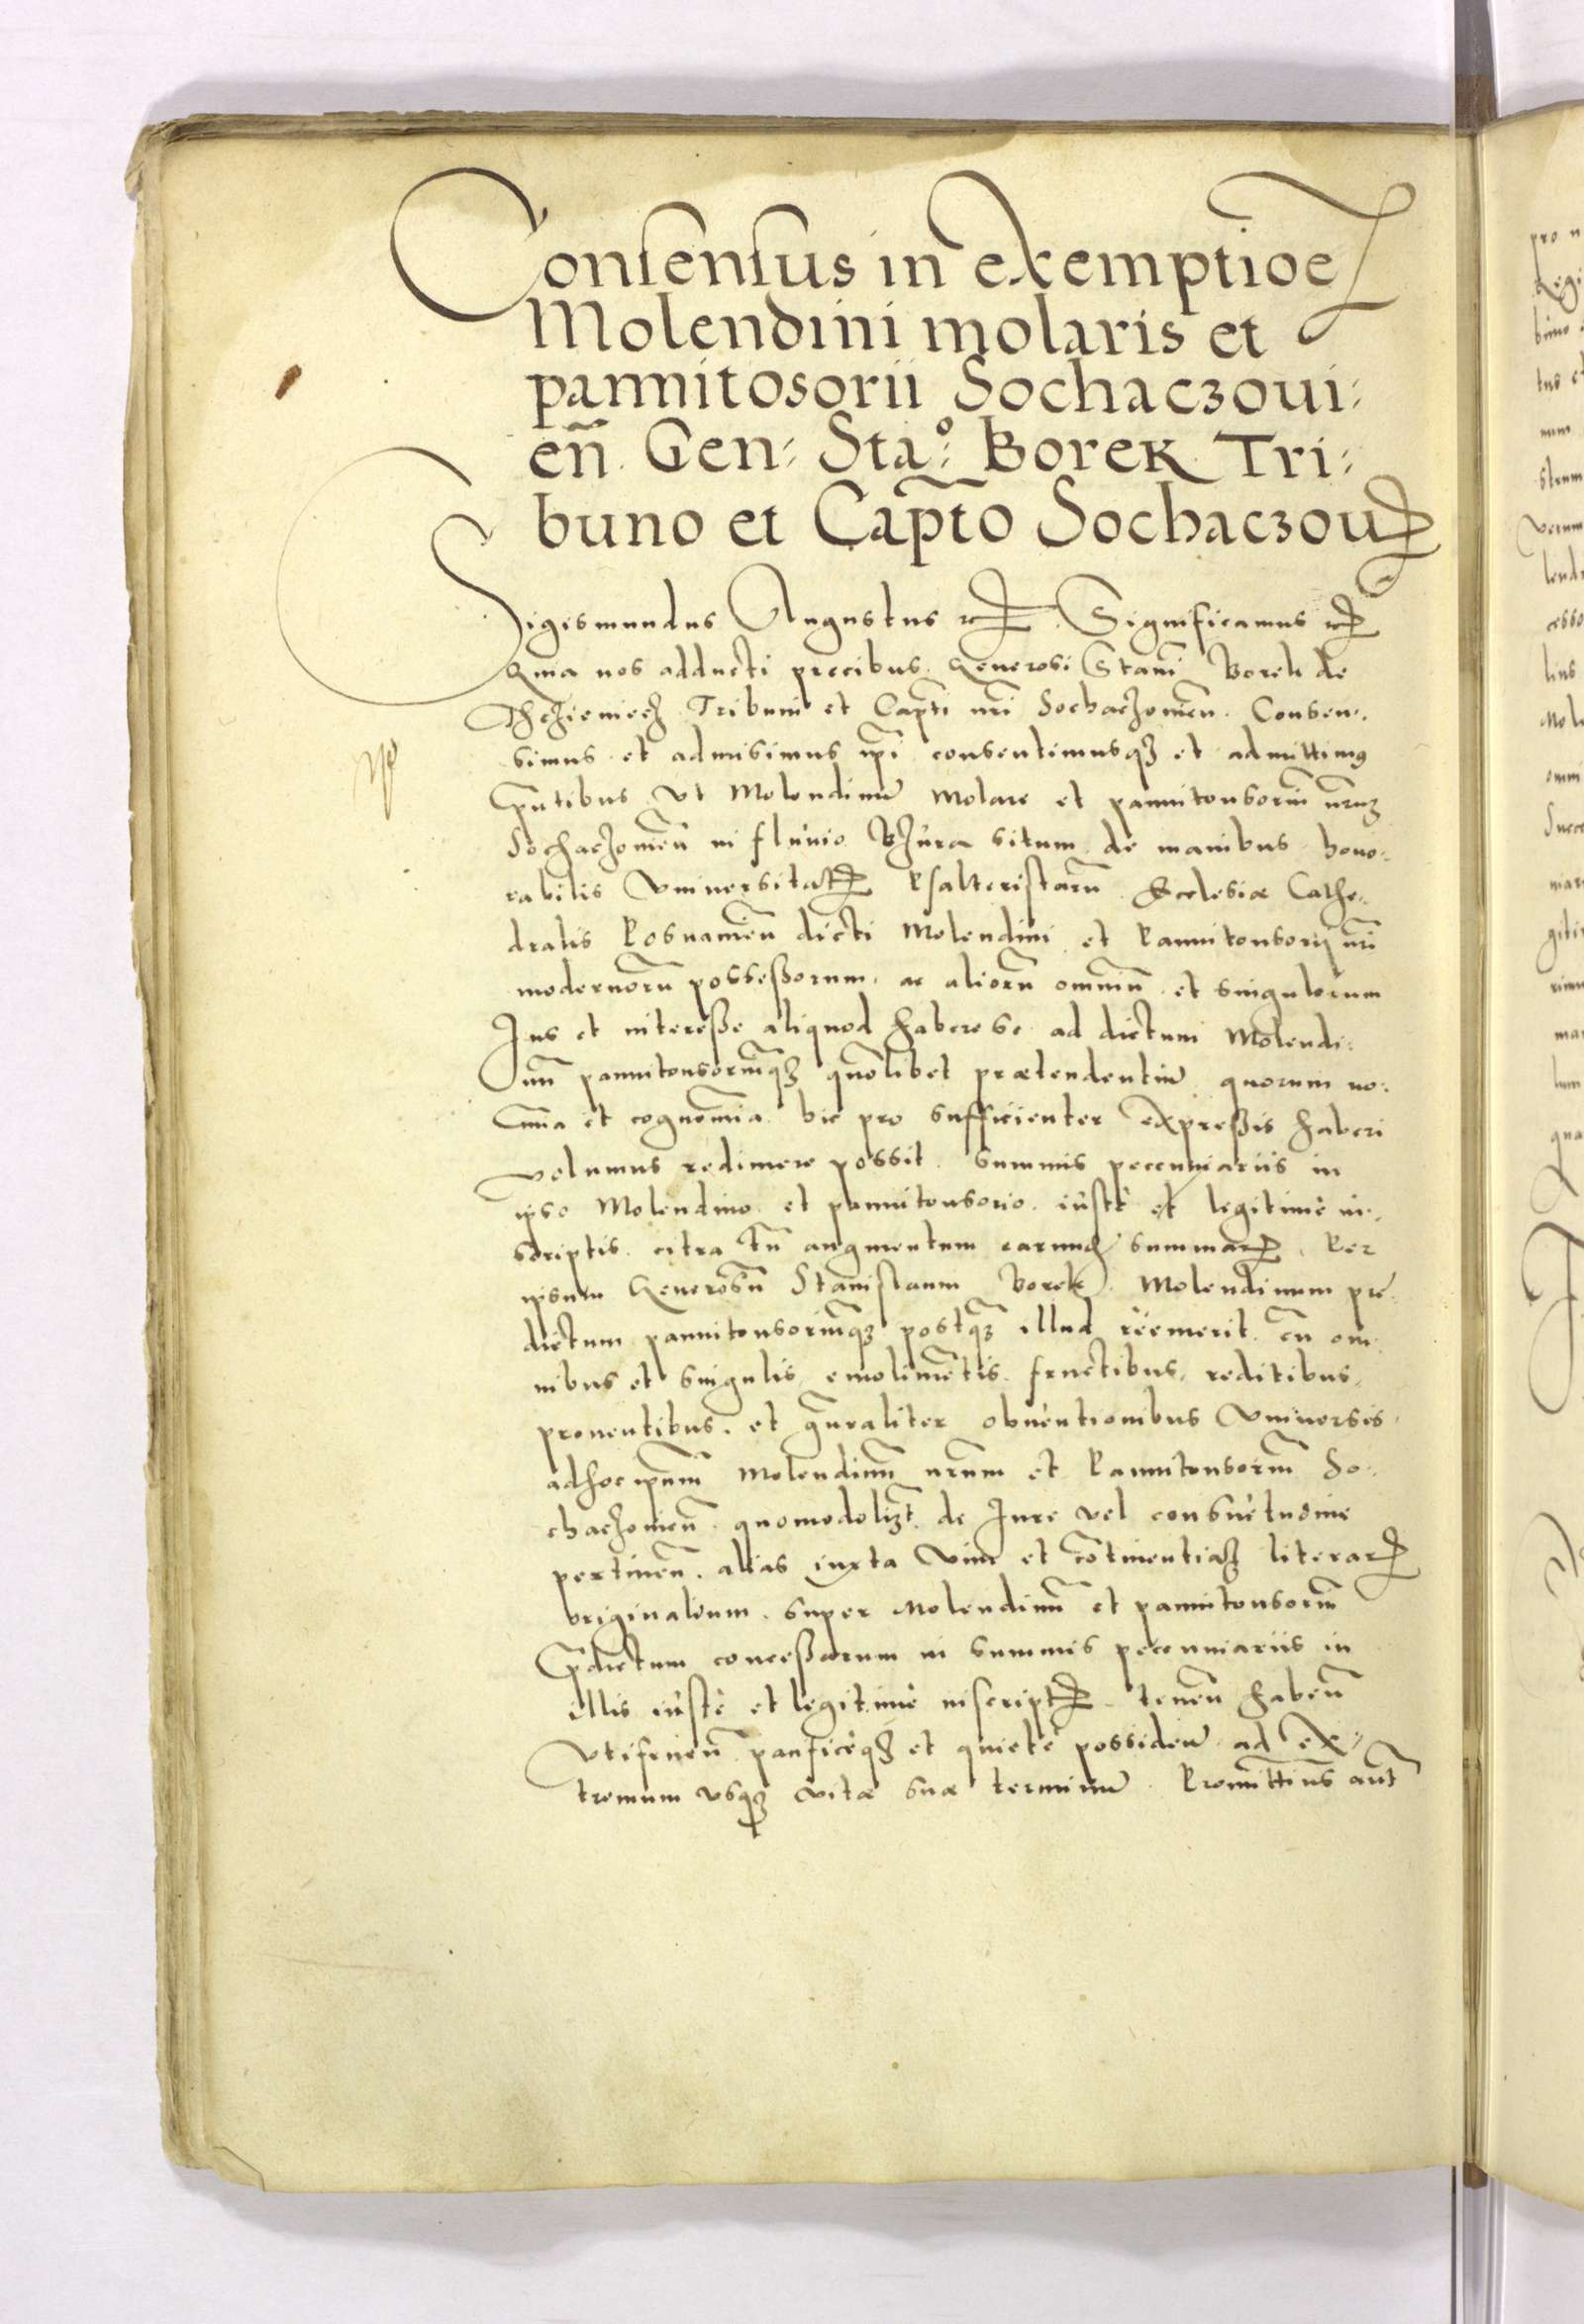 Consensus in exemptioē
Molendini molaris et
pannitosorii Sochaczoui=
eñ. Gen: Sta°: Borek Tri=
buno et Cap̃to Sochaczou
Sigismundus Augustus etc. Significamus etc.
Quia nos adducti precibus Generosi Stani Borek de
Thczieniecz Tribuni et Capti nri Sochaczouien. Consen.
simus et admisimus ipi consentimusqz et admittimus
pntibus Vt Molendinu Molare et pannitonsoriu nrum
Sochaczouien in fluuio Bzura situm de manibus hono.
rabilis Vniuersitatis Psalteristaru Ecclesiæ Cathe.
dralis Posnanien dicti Molendini et Pannitonsorij nri
modernoru possessorum, ac alioru omniu et singulorum
Jus et interesse aliquod habere se ad dictum Molendi.
nu pannitonsoriumqz quolibet prætendentiu quorum no.
mina et cognomia hic pro sufficienter expressis haberi
volumus redimere possit. Summis peccuniariis in
ipso Molendino et pannitonsorio iustè et legitimè in.
scriptis. citra tn augmentum earund summarum. Per
ipsum Generosu Stanislaum Borek. Molendinum præ
dictum pannitonsoriumqz postqz illud reemerit cu om
nibus et singulis emolimentis fructibus, reditibus,
prouentibus. et gnraliter obuentionibus Vniuersis
adhoc ipsum Molendinu nrum et Pannitonsoriu So.
chaczouien quomodolizt de Jure vel consuetudine
pertinen. alias iuxta vim et continentiaz literarum
originalium super Molendinu et pannitonsoriu
prdictum concessarum in summis peccuniariis in
illis iustè et legitimè inscriptis tenen haben
Vtifruen pacificèqz et quietè possiden ad ex=
tremum vsqz vitæ suæ terminu. Promittimus aut